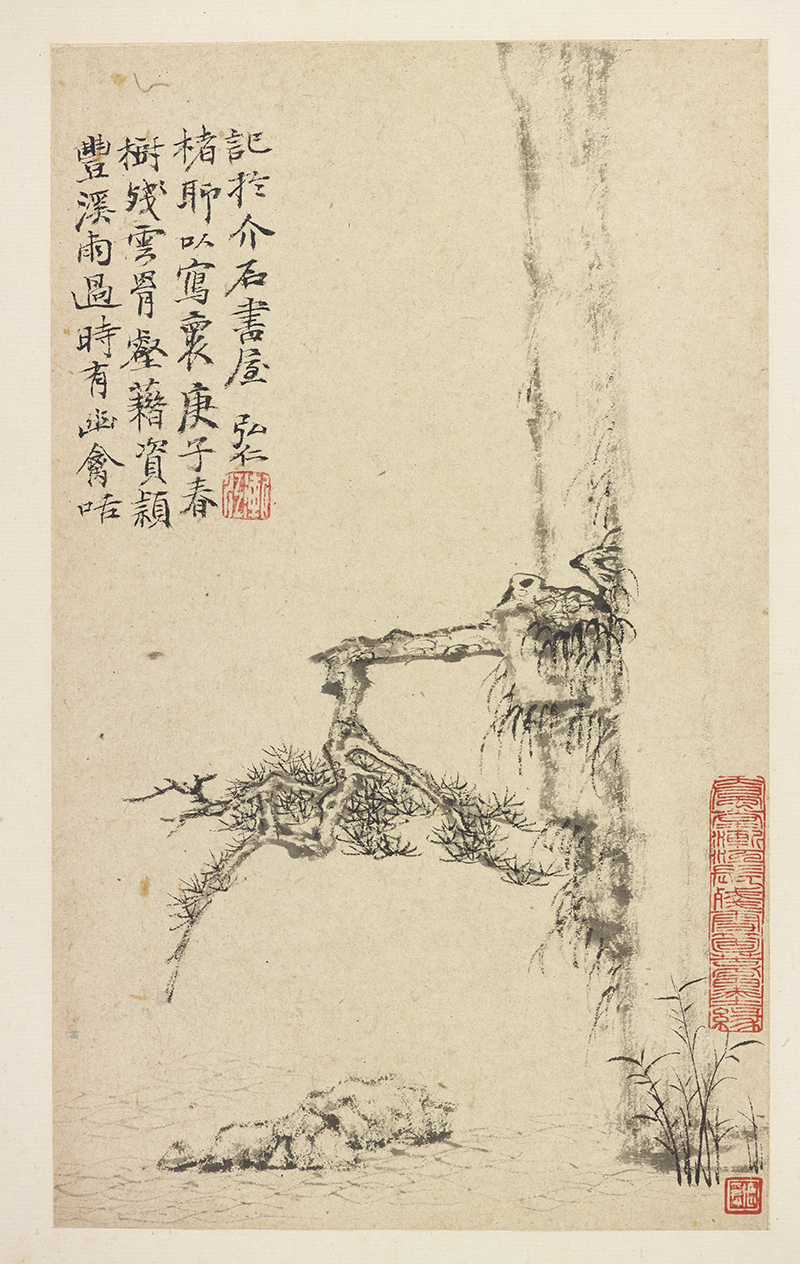 豐溪雨過時有幽禽咶
樹殘雲罥壑藉資穎
楮聊以寫褱庚子春
記於介石書屋 弘仁